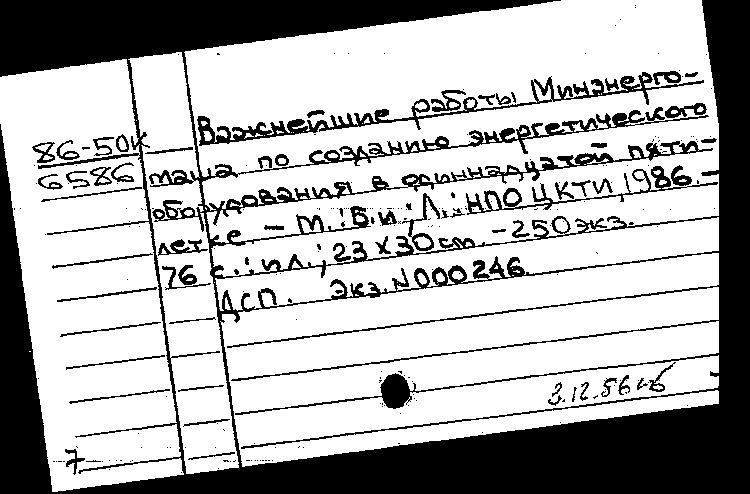 86-50К
6586
Важнейшие работы Минэнерго-
маша по созданию энергетического
оборудования в одиннадцатой пяти-
летке. - М.: Б.и; Л.: НПО ЦКТИ, 1986. -
76 с.: ил.; 23 x 30 cm. - 250 экз.
ДСП. Экз. N000246.
3.12.86
7